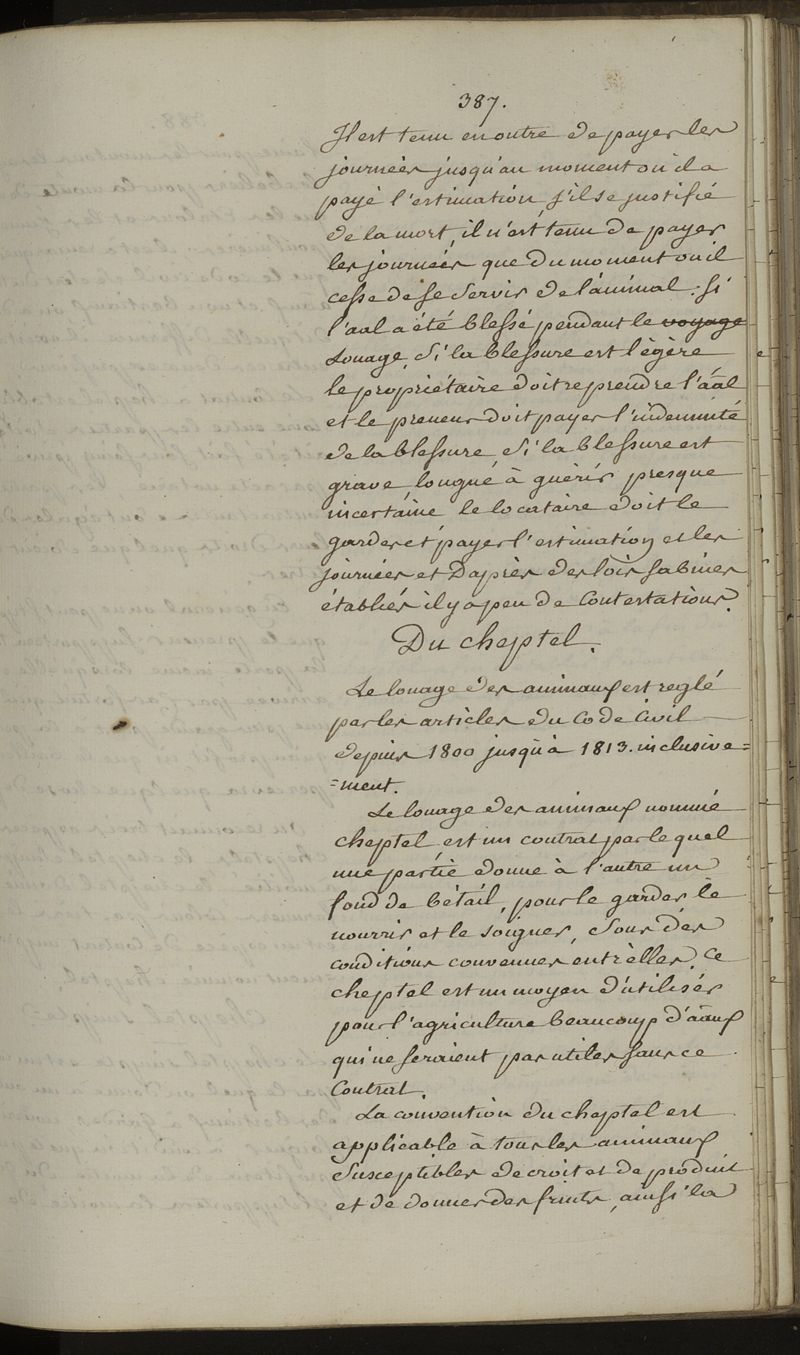 387.
Il est tenu en outre de payer les
journées jusqu'au moment où il a
payé l'estimation, s'il se justifié
de la mort, il n'est tenu de payer
les journées que du moment ou il
cesse de se servir de l'animal. Si
l'aal a été blessé pendant le voyage
Louage, Si la blessure est légère
le propriétaire doit reprendre l'aal
et le preneur doit payer l'indemnité
de la blessure, Si la blessure est
grave, longué à guérir, presque
incertaine le locataire doit le
garder et payer l'estimation et les
journées et D'après des lois
établiés il y a peu de Contestations.
Du cheptel.
Le louage des animaux est reglé
par les articles du Code Civil
depuis 1800 jusqu'à 1813. inclusive=
=ment.
Le louage des animaux nommé
cheptel est un contrat par le quel
une partie donne à l'autre un
fond de bétail, pour le garder le
nourrir et le soigner, Sous des
conditions convenues entr'elles, Ce
cheptel est un moyen d'utiliser
pour l'agriculture beaucoup d'aaux
qui ne seraient pas utiles sans ce
Contrat.
La convention du cheptel est
applicable à tous les animaux
Susceptibles de croit et de produit
et de donner des fruits, ainsi la